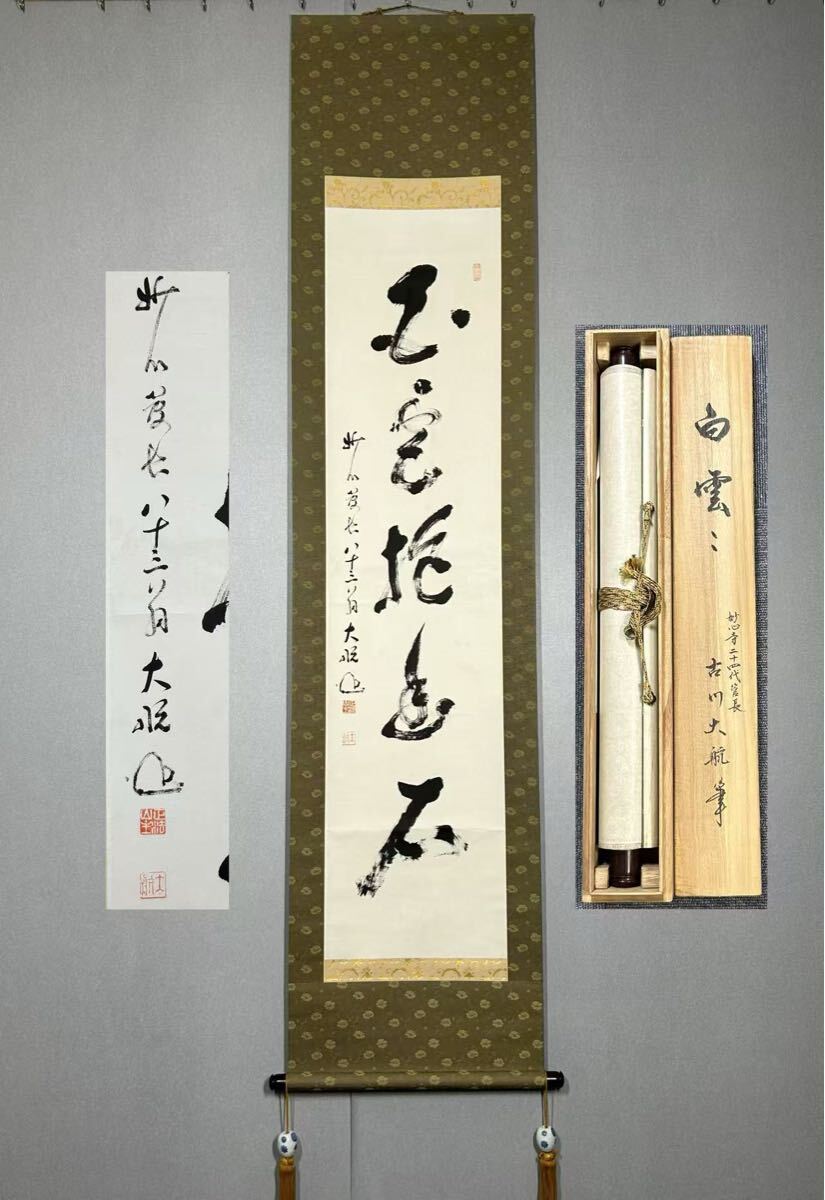 白雲抱幽石
妙心管長八十三翁大航
妙心管長八十三翁大航
正法山主
大航
白雲〻
妙心寺二十四代管長
古川大航筆